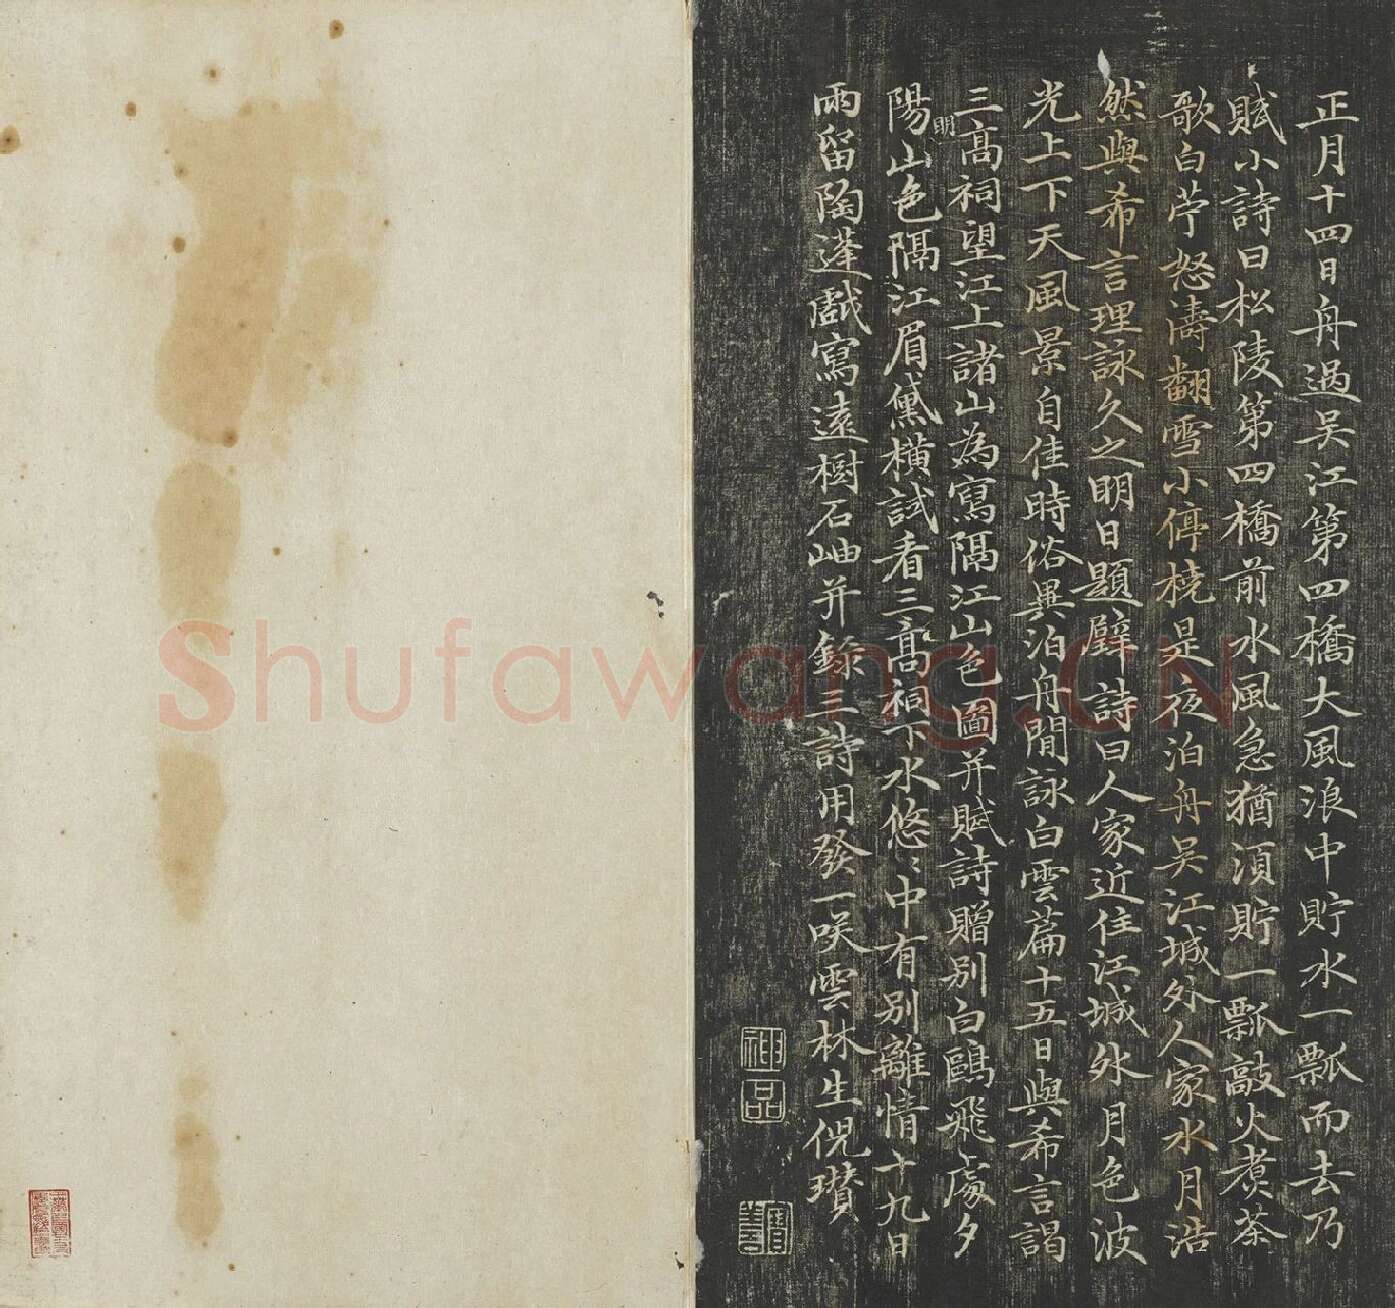 正月十四日舟過吴江第四橋大風浪中貯水一瓢而去乃
賦小詩曰松陵第四橋前水風急猶須貯一瓢敲火煑茶
歌白苧怒濤翻雪小停橈是夜泊舟吴江城外人家水月浩
然與希言理詠久之明日題壁詩曰人家近住江城外月色波
光上下天風景自佳時俗異泊舟閒詠白雲篇十五日與希言謁
三高祠望江上諸山為寫隔江山色圖并賦詩贈别白鷗飛處夕
陽明山色隔江眉黛橫試看三高祠下水悠〻中有别離情十九日
雨留陶蓬戲寫遠樹石岫并錄三詩用發一咲雲林生倪瓚
神品
Shufawang.CN